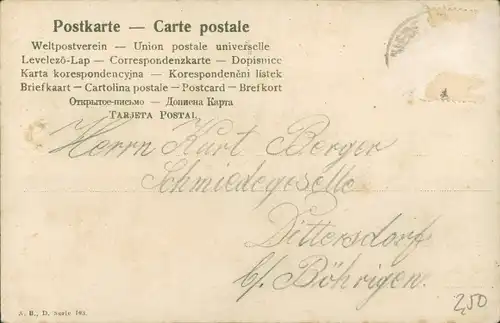 Postkarte — Carte postale
Weltpostverein — Union postale universelle
Levelező-Lap — Correspondenzkarte — Dopisnice
Karta korespondencyjna — Korespondenční lístek
Briefkaart — Cartolina postale — Postcard — Brefkort
Открытое-письмо — Дописна Карта
TARJETA POSTAL
Herrn Kurt Berger
Schmiedegeselle
Dittersdorf
b/ Böhrigen.
D. Serie
2,50